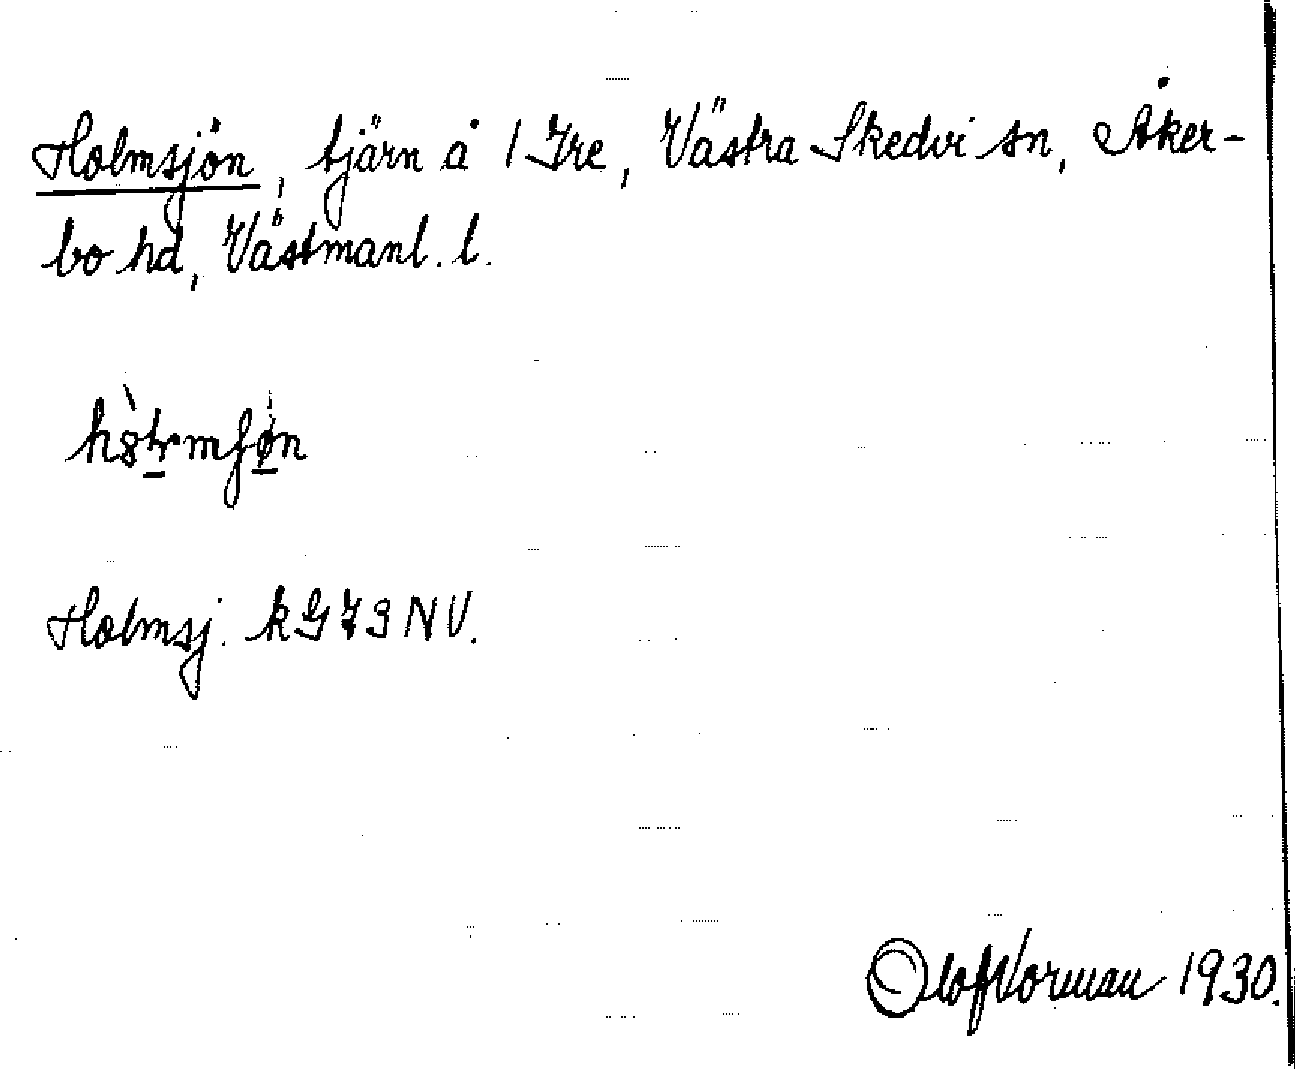 Holmsjön, tjärn å 1 Ire, Västra Skedvi sn, Åker-
bo hd, Västmanl. l.
Holmsj. kG73NV.
Olof Norman 1930.